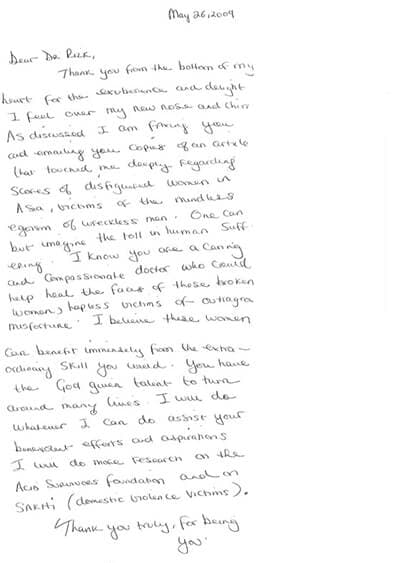 May 26, 2009
Dear Dr Rizk,
Thank you from the bottom of my
heart for the exuberance and delight
I feel over my new nose and chin
As discussed I am faxing you
and emailing you copies of an article
that touched me deeply regarding
scores of disfigured women in
Asia, victims of the mindless
egoism of wreckless men. One can
but imagine the toll in human suff-
ering. I know you are a caring
and compassionate doctor who could
help heal the faces of these broken
women, hapless victims of outragous
misfortune. I believe these women
can benefit immensely from the extra-
ordinary skill you wield. You have
the God given talent to turn
around many lives. I will do
whatever I can do assist your
benevolent efforts and aspirations
I will do more research on the
Acid Survivors Foundation and on
SAKHI (domestic violence victims).
Thank you truly, for being
you.